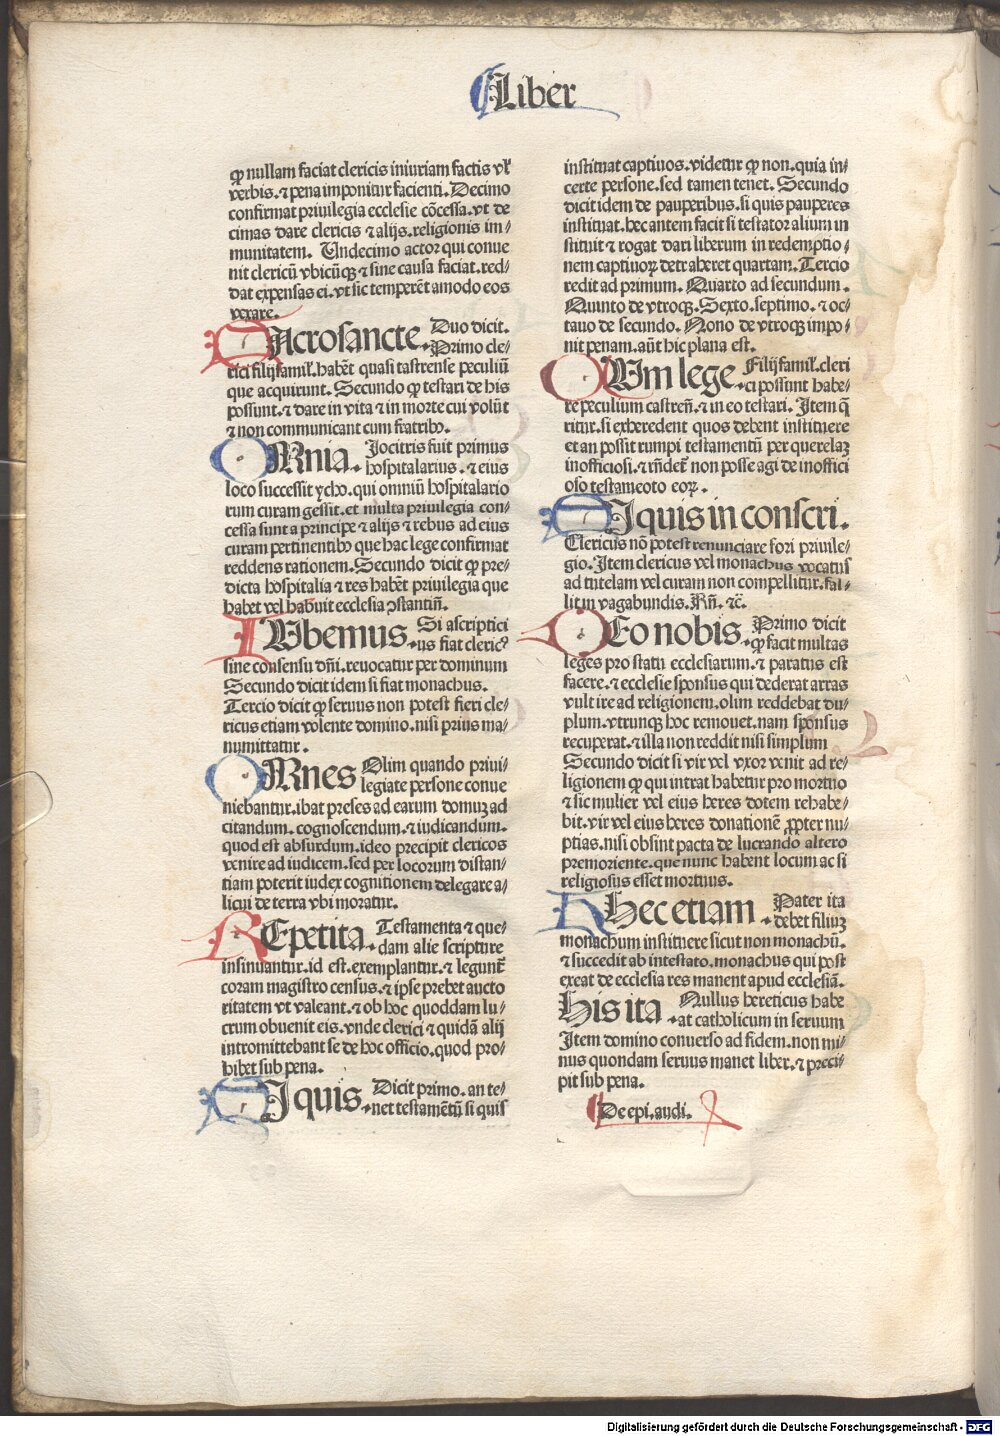 Liber
ꝙ nullam faciat clericis iniuriam factis vl'
verbis. ⁊ pena imponitur facienti. Decimo
confirmat priuilegia ecclesie cōcessa. vt de
cimas dare clericis ⁊ alijs. religionis im⸗
munitatem. Undecimo actor qui conue
nit clericū vbicūqꝫ ⁊ sine causa faciat. red⸗
dat expensas ei. vt sic temperēt amodo eos
vexare.
SAcrosancte. Duo dicit.
Primo cle⸗
rici filijfamil'. habēt quasi tastrense peculiū
que acquirunt. Secundo ꝙ testari de his
possunt. ⁊ dare in vita ⁊ in morte cui volūt
⁊ non communicant cum fratribꝰ.
OMnia. Jocitris fuit primus
hospitalarius. ⁊ eius
loco successit ycho. qui omniū hospitalario
rum curam gessit. et multa priuilegia con⸗
cessa sunt a principe ⁊ alijs ⁊ rebus ad eius
curam pertinentibꝰ que hac lege confirmat
reddens rationem. Secundo dicit ꝙ pre⸗
dicta hospitalia ⁊ res habēt priuilegia que
habet vel habuit ecclesia ꝯstantiñ.
IUbemus. Si ascriptici
us fiat clericꝰ
sine consensu dñi. reuocatur per dominum
Secundo dicit idem si fiat monachus.
Tercio dicit ꝙ seruus non potest fieri cle⸗
ricus etiam volente domino. nisi prius ma⸗
numittatur.
OMnes Olim quando priui⸗
legiate persone conue
niebantur. ibat preses ad earum domuꝫ ad
citandum. cognoscendum. ⁊ iudicandum.
quod est absurdum. ideo precipit clericos
venire ad iudicem. sed per locorum distan⸗
tiam poterit iudex cognitionem delegare a⸗
licui de terra vbi moratur.
REpetita. Testamenta ⁊ que⸗
dam alie scripture
insinuantur. id est. exemplantur. ⁊ legunt̄
coram magistro census. ⁊ ipse prebet aucto
ritatem vt valeant. ⁊ ob hoc quoddam lu⸗
crum obuenit eis. vnde clerici ⁊ quidā alij
intromittebant se de hoc officio. quod pro⸗
hibet sub pena.
SI quis. Dicit primo. an te⸗
net testamētū si quis
instituat captiuos. videtur ꝙ non. quia in⸗
certe persone. sed tamen tenet. Secundo
dicit idem de pauperibus. si quis pauperes
instituat. hec antem facit si testator alium in
stituit ⁊ rogat dari liberum in redemptio⸗
nem captiuoꝝ detraheret quartam. Tercio
redit ad primum. Quarto ad secundum.
Quinto de vtroqꝫ. Sexto. septimo. ⁊ oc⸗
tauo de secundo. Nono de vtroqꝫ impo⸗
nit penam. aūt hic plana est.
CUm lege. Filijfamil'. cleri
ci possunt habe⸗
re peculium castreñ. ⁊ in eo testari. Item q̄
ritur. si exheredent quos debent instituere
et an possit rumpi testamentū per querelaꝫ
inofficiosi. ⁊ rñdet̄ non posse agi de inoffici
oso testameoto eoꝝ.
SI quis in conscri.
Clericus nō potest renunciare fori priuile⸗
gio. Item clericus vel monachus vocatus
ad tutelam vel curam non compellitur. fal⸗
lit in vagabundis. Rñ. ⁊c̄.
DEo nobis. Primo dicit
ꝙ facit multas
leges pro statu ecclesiarum. ⁊ paratus est
facere. ⁊ ecclesie sponsus qui dederat arras
vult ire ad religionem. olim reddebat du⸗
plum. vtrunqꝫ hoc remouet. nam sponsus
recuperat. ⁊ illa non reddit nisi simplum
Secundo dicit si vir vel vxor venit ad re⸗
ligionem ꝙ qui intrat habetur pro mortuo
⁊ sic mulier vel eius heres dotem rehabe⸗
bit. vir vel eius heres donationē ꝓpter nu⸗
ptias. nisi obsint pacta de lucrando altero
premoriente. que nunc habent locum ac si
religiosus esset mortuus.
Hec etiam. Pater ita
debet filiuꝫ
monachum instituere sicut non monachū.
⁊ succedit ab intestato. monachus qui post
exeat de ecclesia res manent apud ecclesiā.
His ita Nullus hereticus habe
at catholicum in seruum
Item domino conuerso ad fidem. non mi⸗
nus quondam seruus manet liber. ⁊ preci⸗
pit sub pena.
De epi. audi.
Digitalisierung gefördert durch die Deutsche Forschungsgemeinschaft - DFG